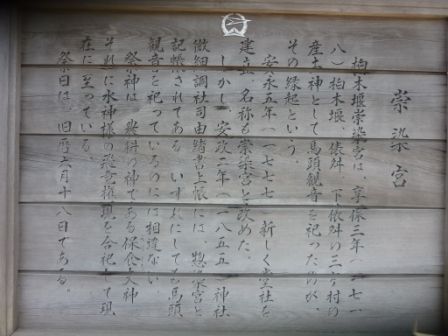 崇染宮
柏木堰崇染宮は、享保三年(一七一
八)柏木堰、俵舛、下俵舛の三ヶ村の
産土神として馬頭観音を祀ったのが、
その縁起という。
安永五年(一七七七)新しく堂社を
建立、名称も崇染宮と改めた。
しかし、安政二年(一八五五)神社
微細調社司由緒書上帳には、惣染宮と
記帳されてある。いずれにしても馬頭
観音を祀っているのには相違ない。
祭神は、幾科の神である保食大神
それに水神様の飛竜権現を合祀して現
在に至っている。
祭日は、旧暦六月十八日である。